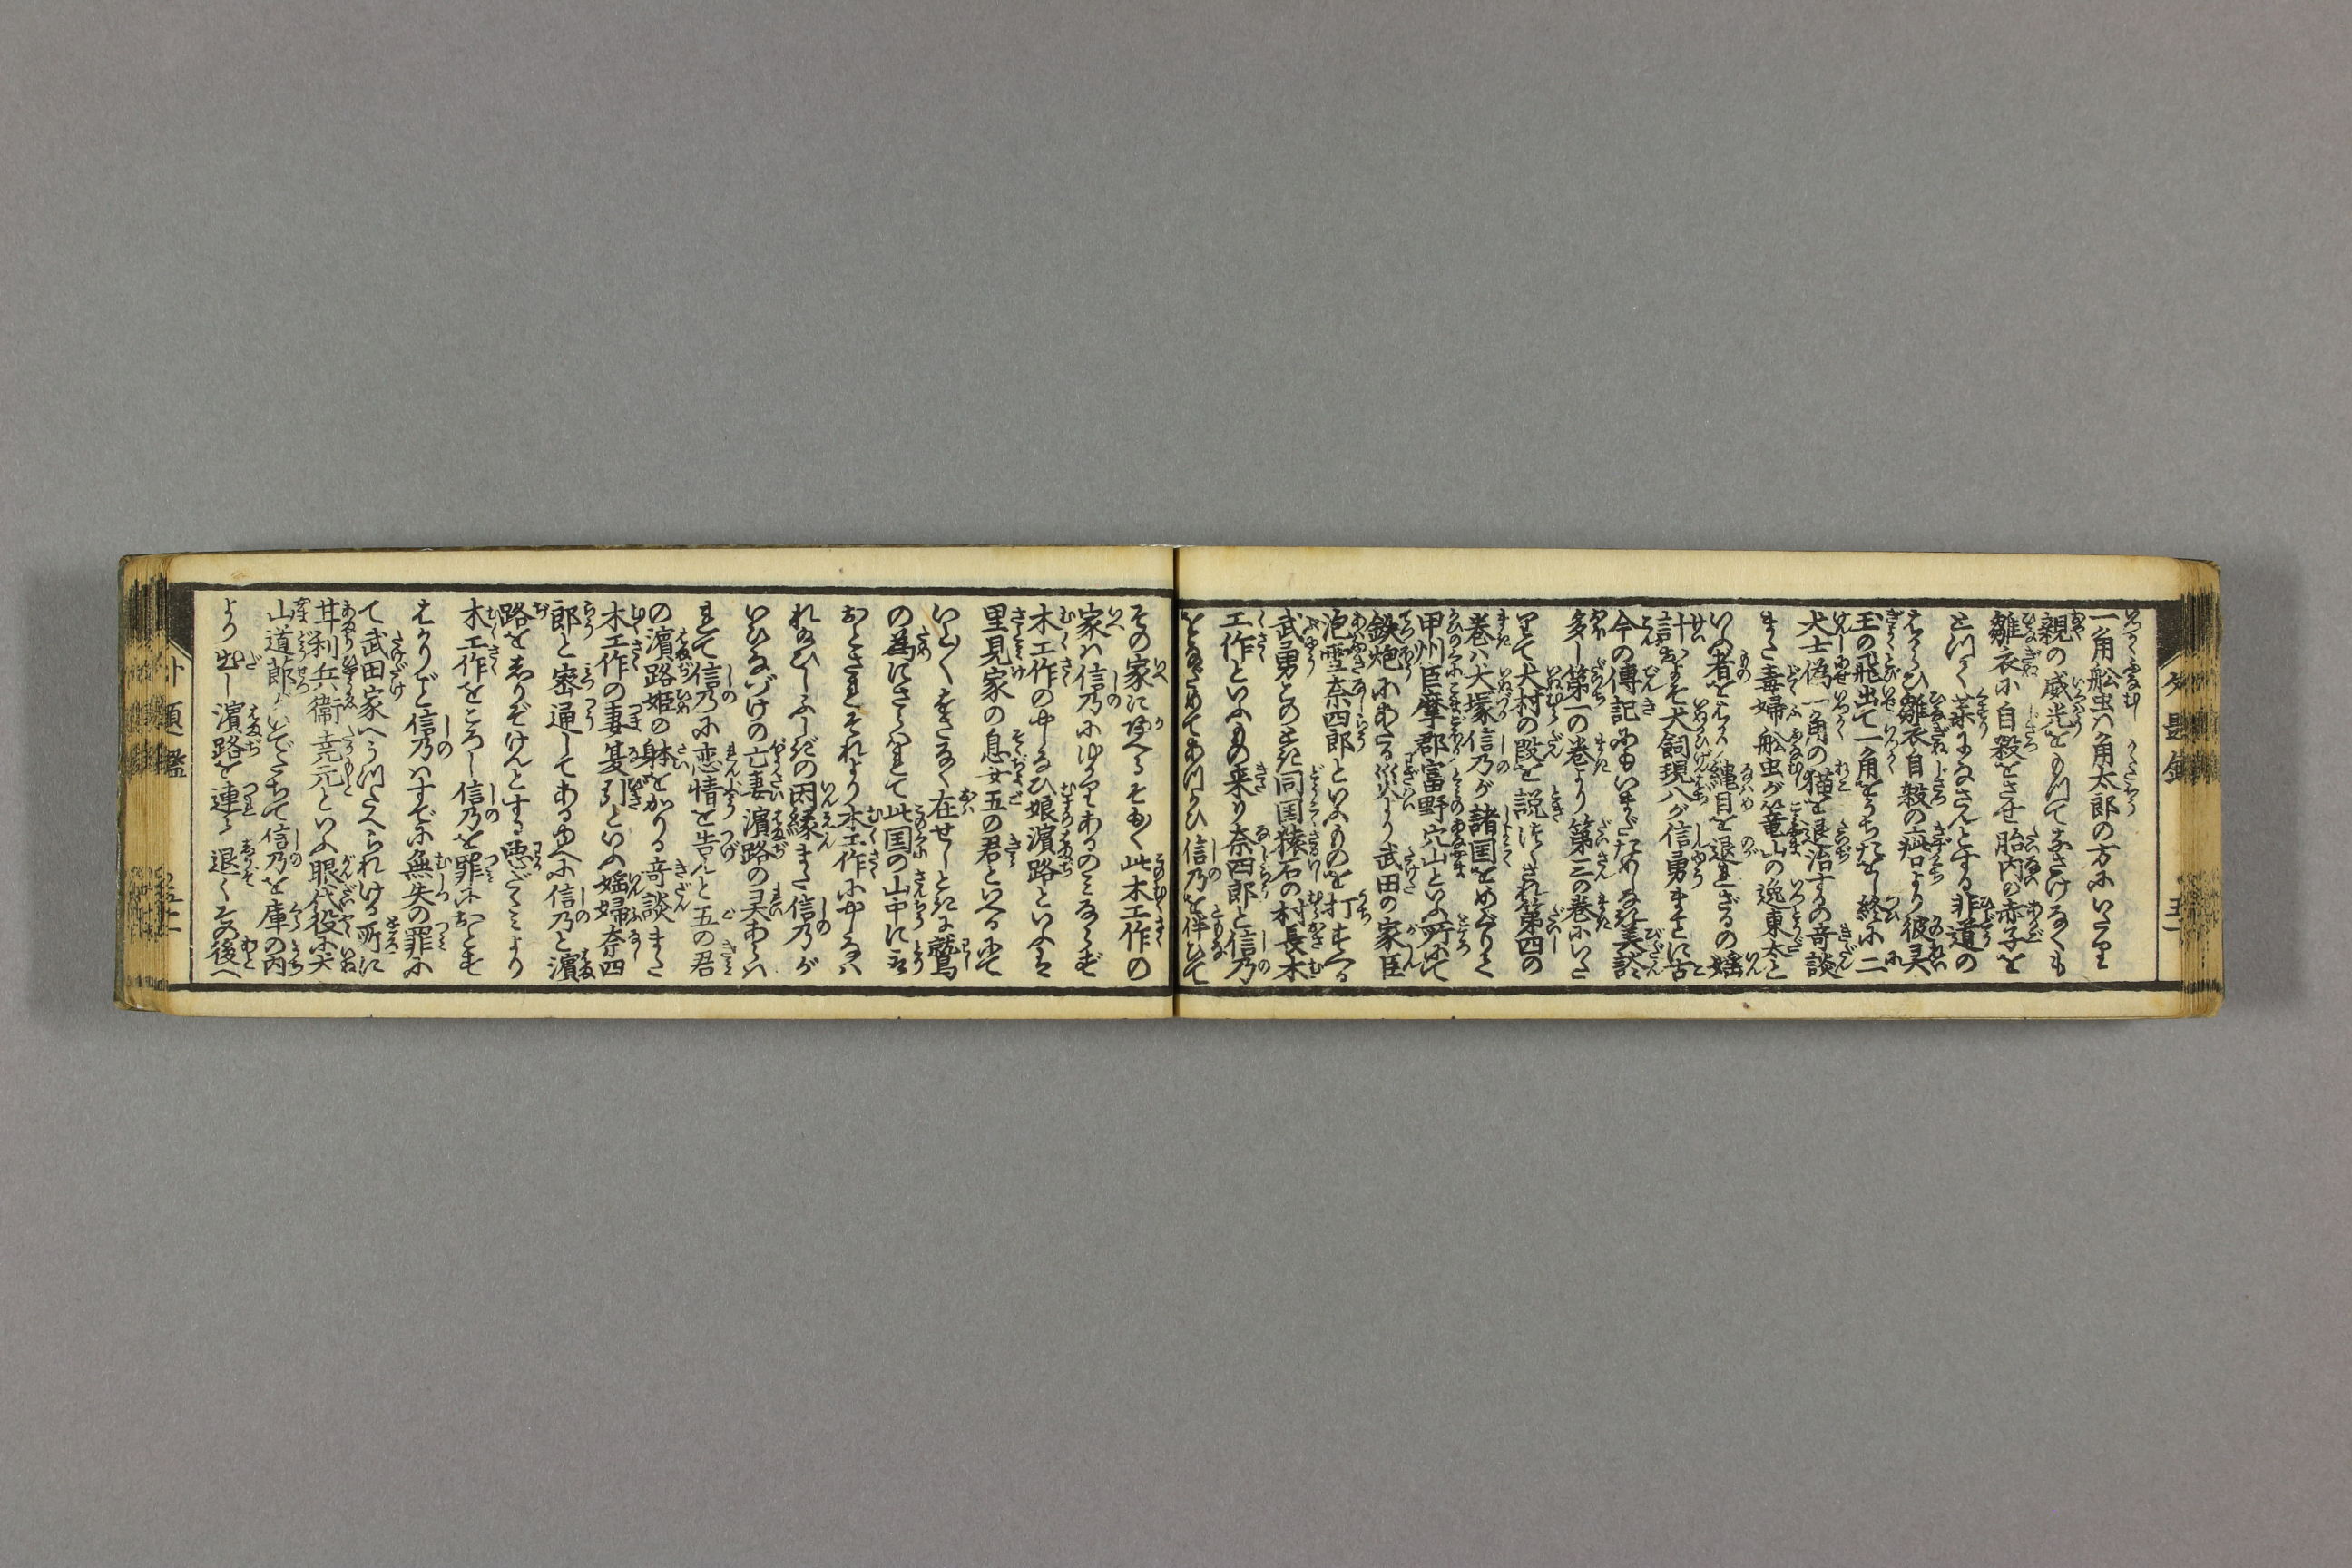 一角舩虫ハ角太郎の方にいたり
親の威光をもつてなさけなくも
雛衣に自殺をさせ胎内の赤子を
とつく薬になさんとする非道の
はからひ雛衣自殺の疵口より彼灵
玉の飛出て一角をうちたをし終に二
犬士偽一角の猫を退治するの竒談
また毒婦舩虫が篭山の逸東太と
いふ者をはかり縄目を退るの婬
計およそ犬飼現八が信勇まことに古
今の傳記にもいまだためしなき美談
多し第一の巻より第三の巻にいた
りて犬村の段を説つくされ第四の
巻ハ犬塚信乃が諸国をめぐりて
甲州巨摩郡富野穴山といふ所にて
鉄炮にあたる災より武田の家臣
泡雪奈四郎といふものを打すへる
武勇このとき同国猿石の村長木
工作といふもの来り奈四郎と信乃
をなだめてあつかひ信乃を伴ひて
その家にかへるそもそも此木工作の
家ハ信乃にゆかりあるのみならず
木工作のやしなひ娘濵路といふは
里見家の息女五の君といへるにて
いとけなく在せしときに鷲
の為にさらはれて此国の山中に
おとされそれより木工作にやしなは
れ給ひしふしぎの因縁また信乃が
いひなづけの亡妻濵路の灵あらハ
れて信乃に恋情を告んと五の君
の濵路姫の躰をかりる竒談また
木工作の妻夏引といふ婬婦奈四
郎と密通してあるゆへに信乃と濵
路をしりぞけんとする悪だくみより
木工作をころし信乃を罪におとす
はかりごと信乃ハすでに無失の罪に
て武田家へうつたへられける所に
甘利兵衛尭元といふ眼代役に犬
山道節がいでたちて信乃を庫の内
より出し濵路を連て退くその後へ